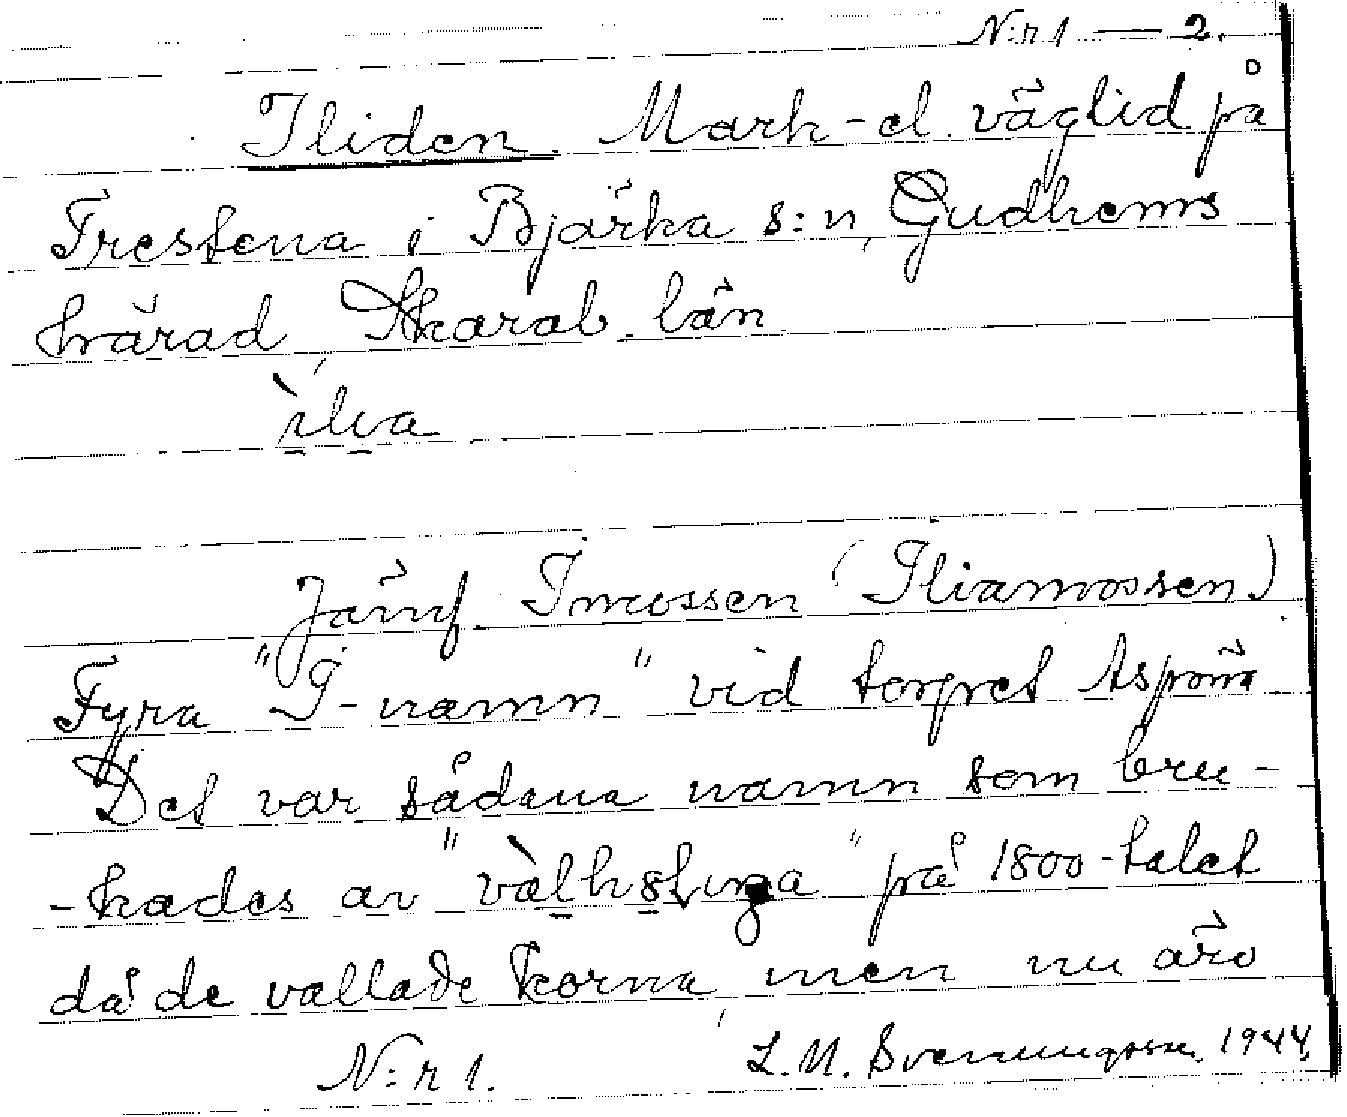 N:r 1 — 2.
Iliden. Mark- el. väglid på
Frestena i Bjärka s:n, Gudhems
härad, Skarab. län
ìlia
Jämf. Imossen (Iliamossen)
Fyra "I-namn" vid torpet Aspöm
Det var sådana namn som bru-
-kades av "vàlhstinga" på 1800-talet
då de vallade korna, men nu äro
N:r 1. L. M. Svenungsson 1944.